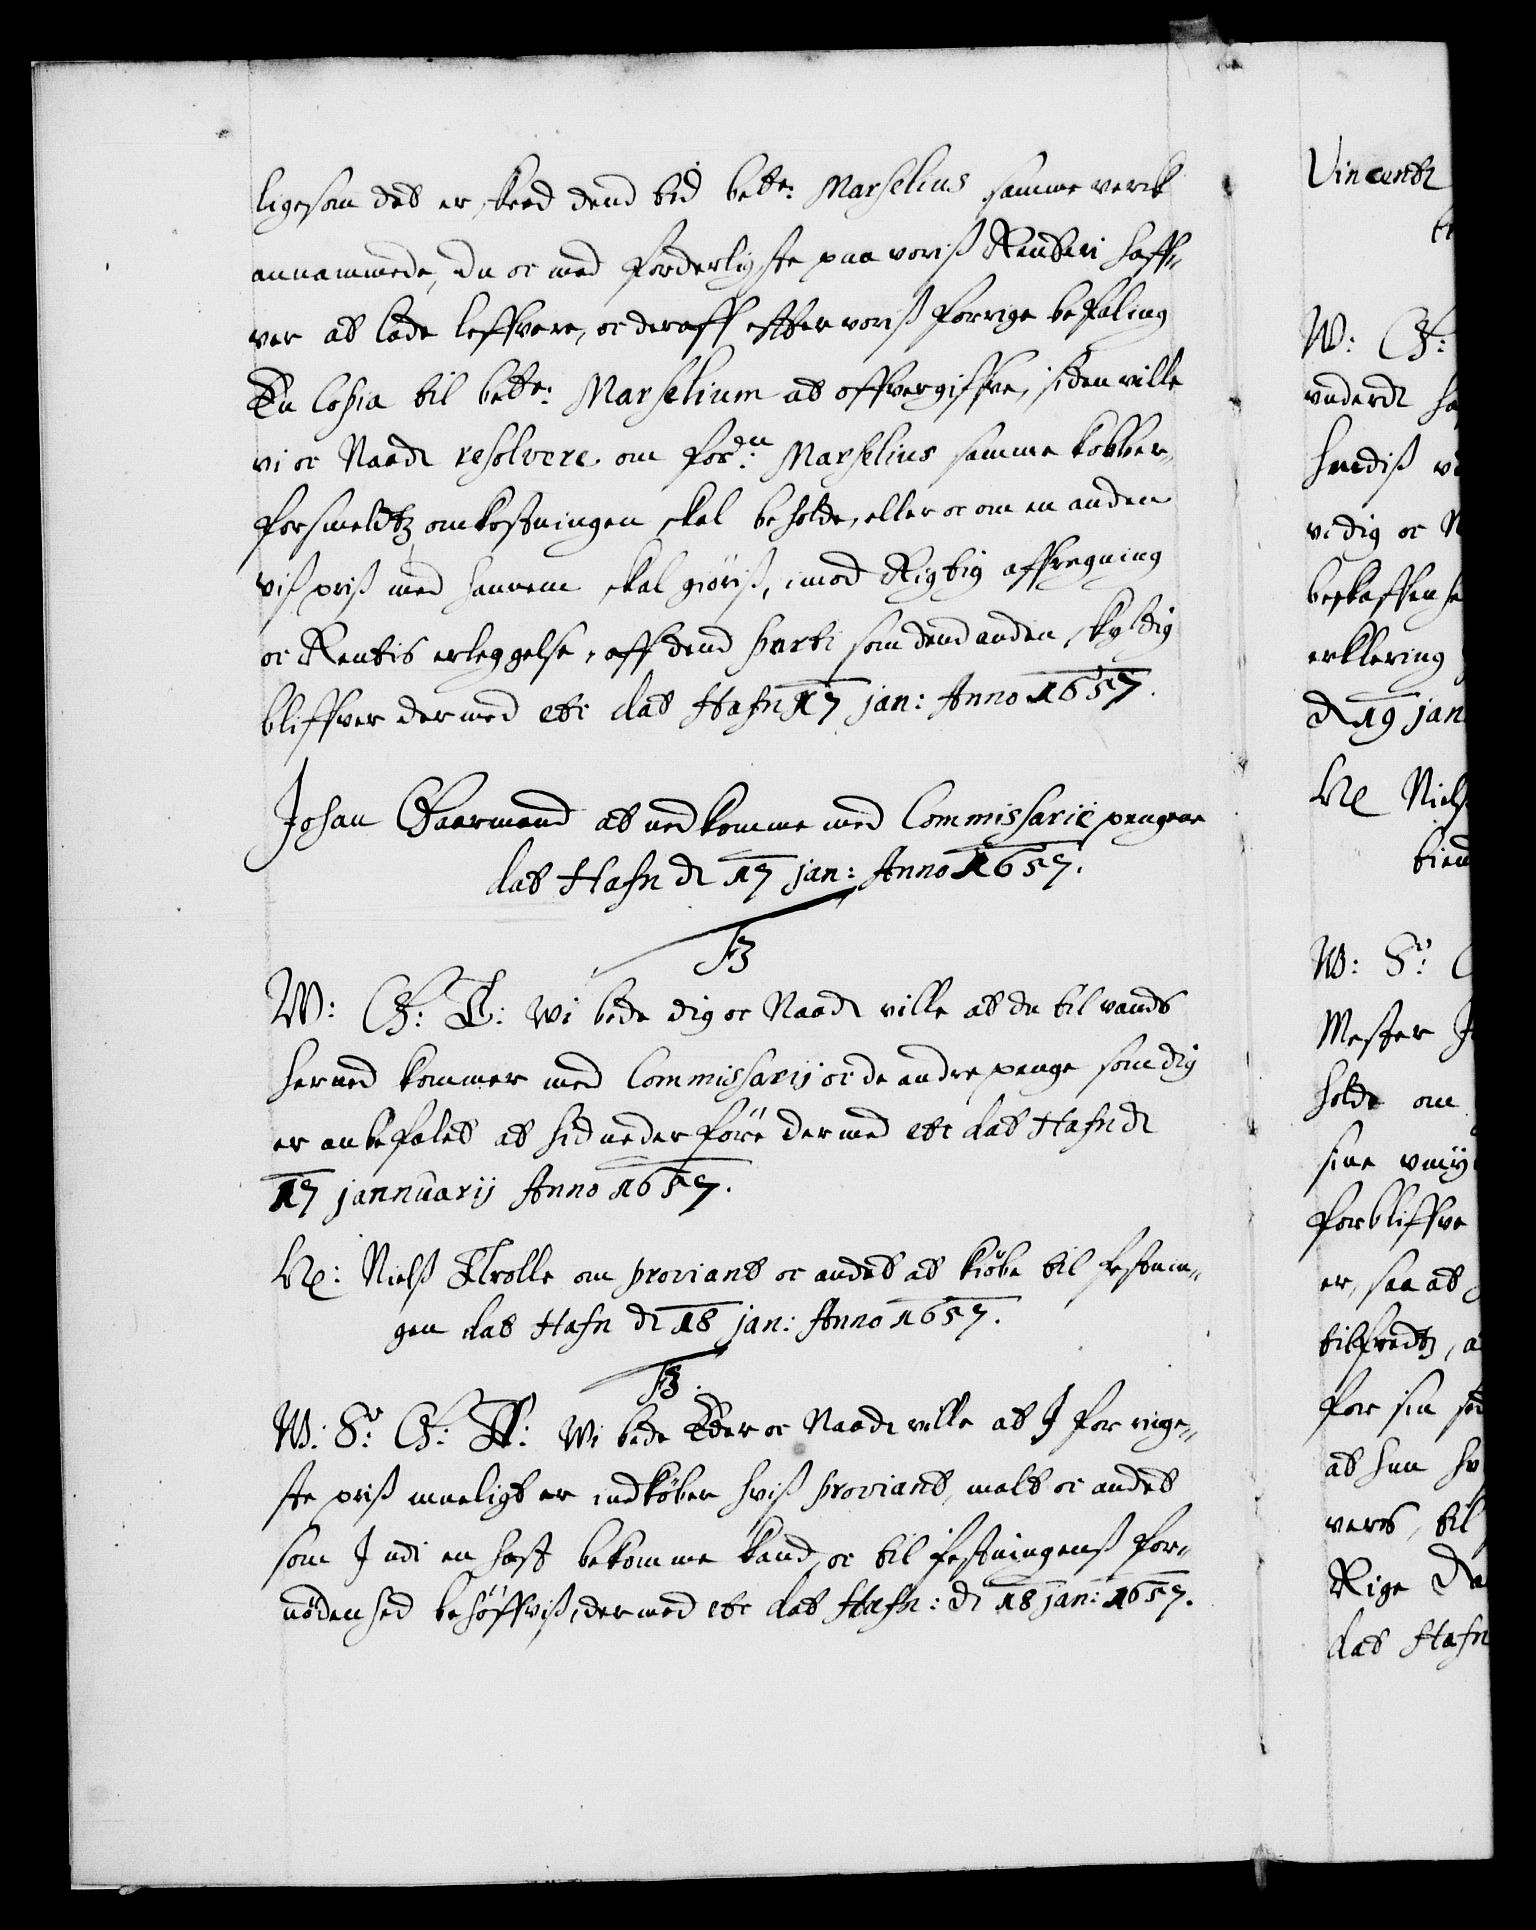 ligesom det er skeed dend tid bete: Marselius samme verck
annammede, du oc med forderligste paa voriß Renteri haff„
ver at lade leffvere, oc deraff effter voriß forrige befaling
En Copia til bete: Marselium at offvergiffve, siden ville
vi oc Naadt resolvere om fordn: Marselius samme kobber„
forsmeldtz omkostningen skal beholde, eller oc om en anden
viß priß med hannem skal giöriß, imod Rigtig affregning
oc Rentis erleggelse, aff dend parti som dend anden skyldig
bliffver dermed etc dat Hafn 17 jan: Anno 1657.
Johan Gaarmand at nedkomme med Commissarie pengene
dat Hafn d 17 jan: Anno 1657.
F3
W: G: T: Wi bede dig oc Naadt ville at du til vands
herned kommer med Commissarij oc de andre penge som dig
er anbefalet at hid neder före dermed etc dat Hafn d
17 jannuarij Anno 1657.
H: Nielß Trolle om proviant oc andet at kiöbe til festnin„
gen dat Hafn d 18 jan: Anno 1657.
F3.
W: S: G: T: Wi bede Eder oc Naadt ville at J for ringe„
ste priß mueligt er indköber hviß proviant, malt oc andet
som J udi en hast bekomme kand, oc til festningenß for„
nödenhed behöffviß, dermed etc dat Hafn: d 18 jan: 1657.
Vincentz
W: G:
vnderdt
hendiß
vedig oc
beskaffenhe
erklering
d 19 jan
H Niels
tiend
W: S:
Mester
holde om
sine
forbliffve
er, saa at
tilfredtz, a
for sin
at hun
verts, til
Rige Da
dat Hafn